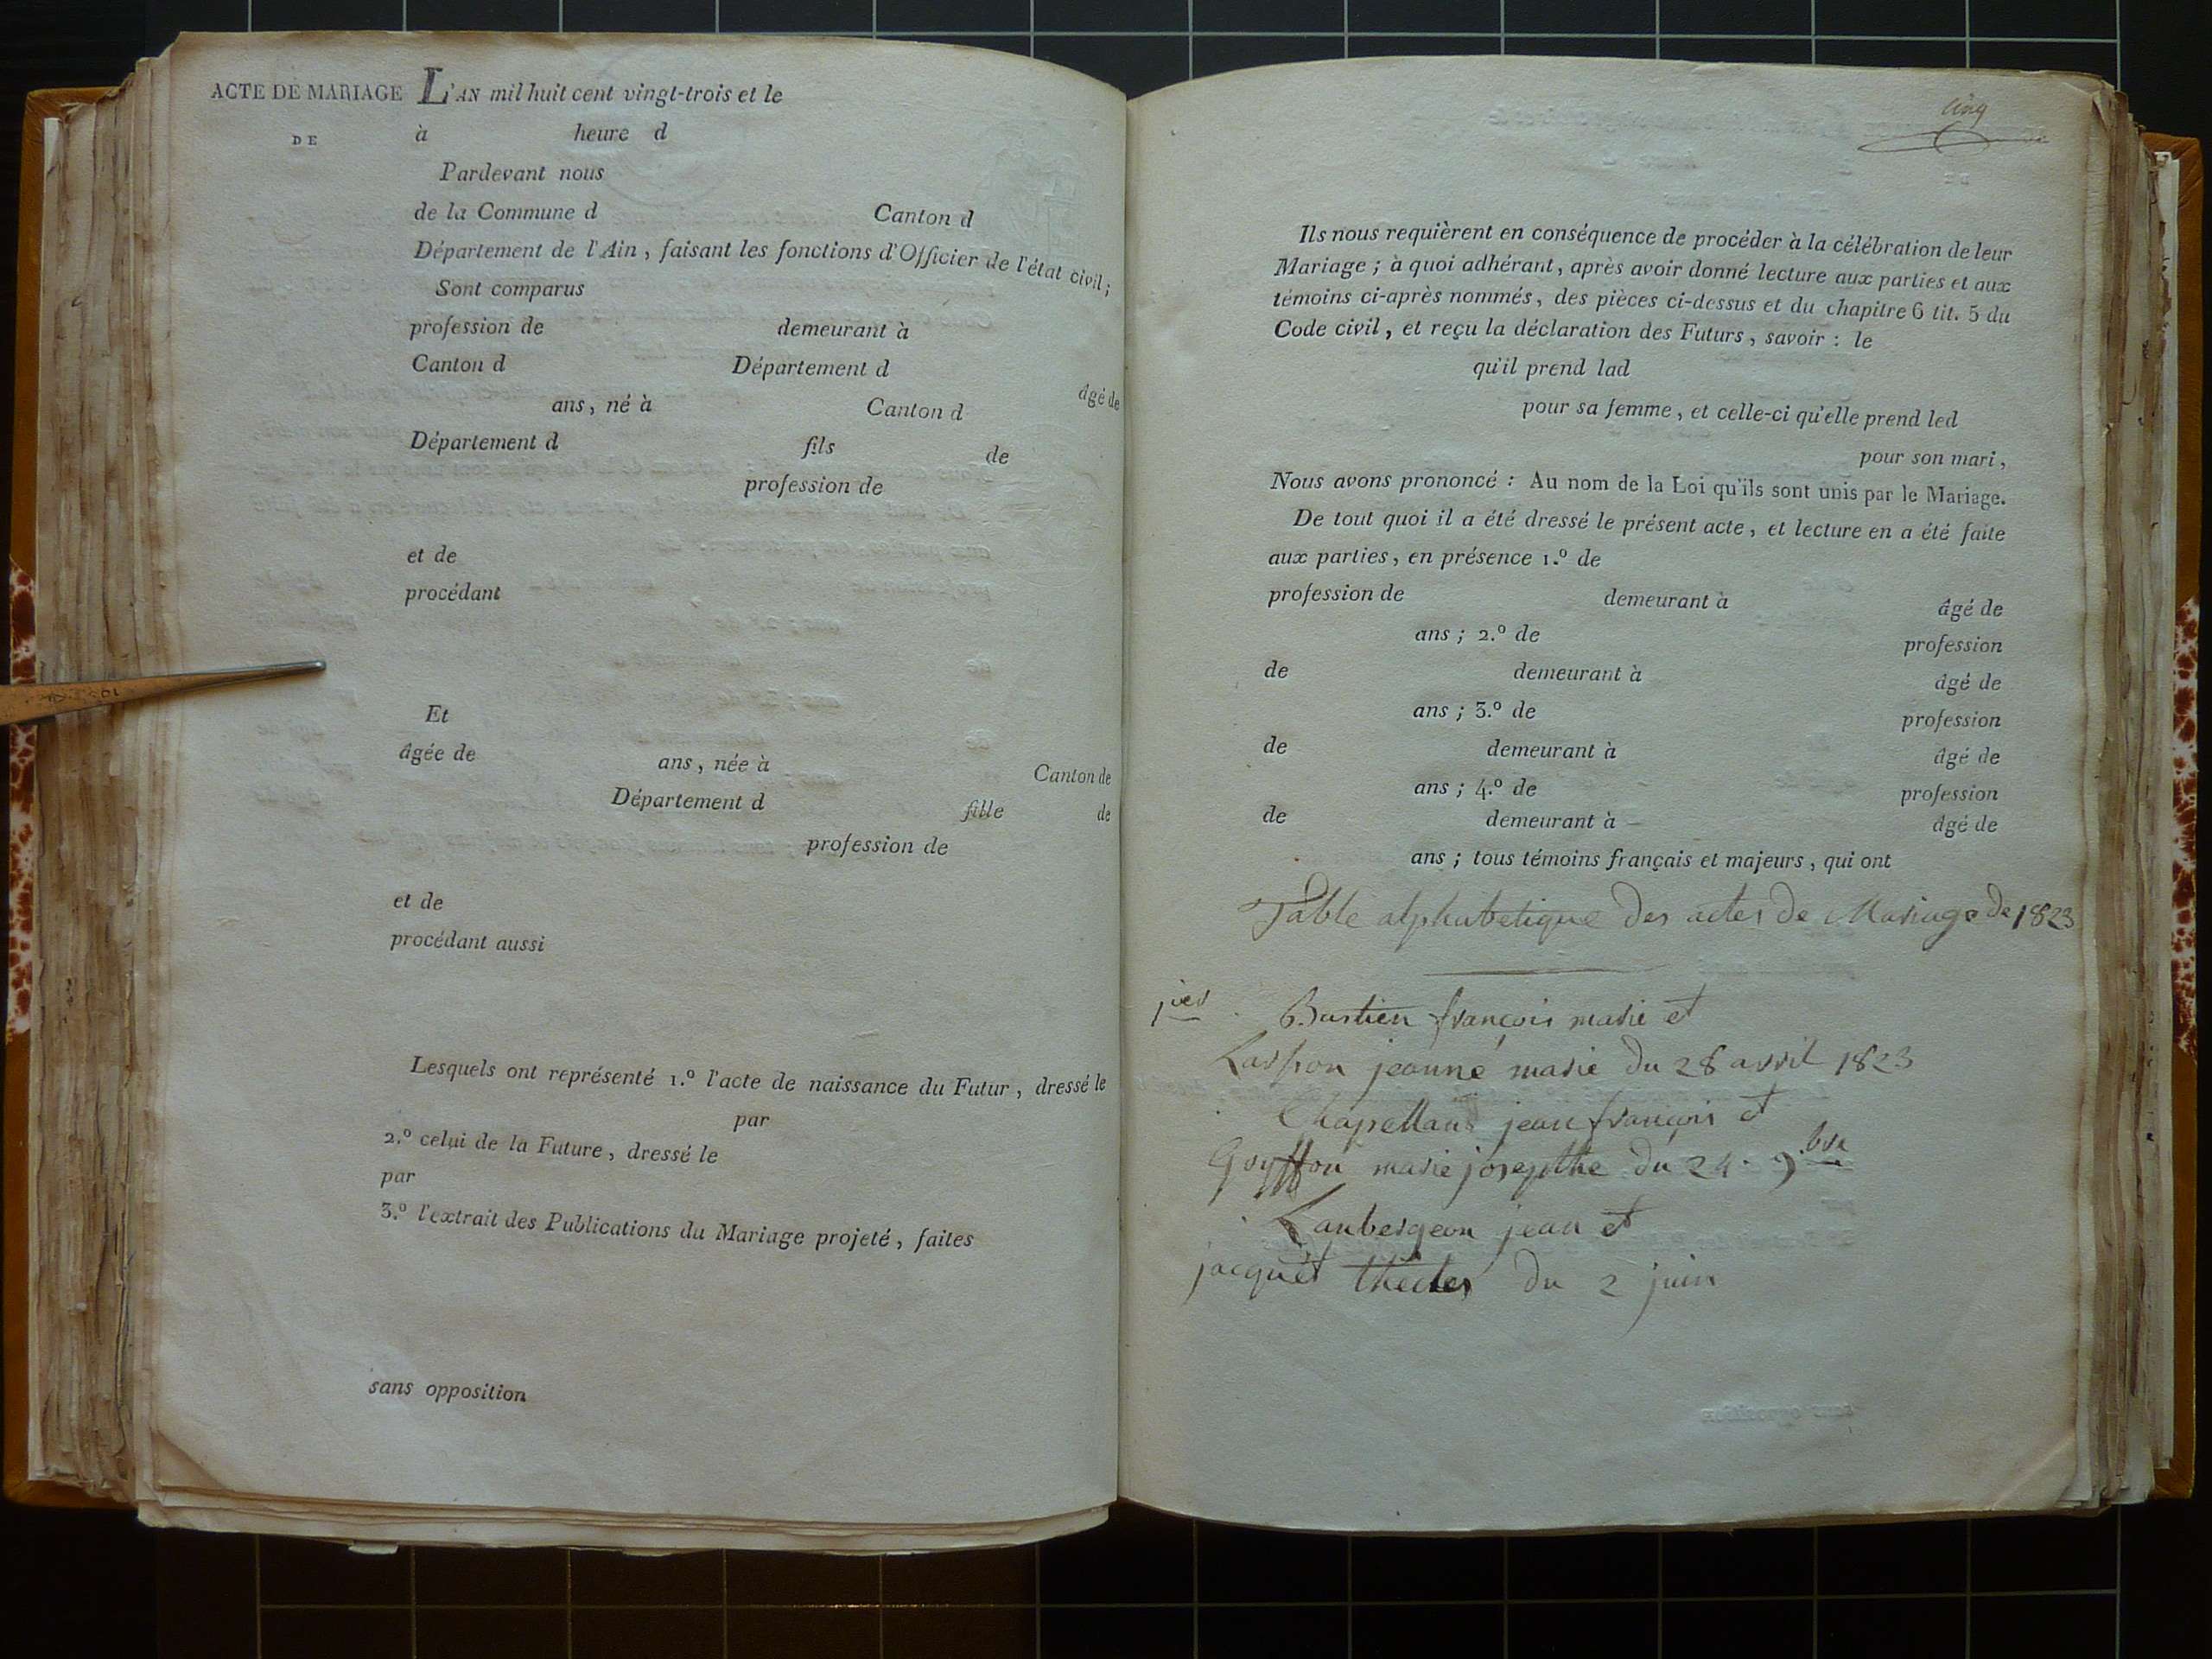 ACTE DE MARIAGE L'AN mil huit cent vingt-trois et le
DE à heure d
Pardevant nous
de la Commune d Canton d
Département de l'Ain, faisant les fonctions d'Officier de l'état civil;
Sont comparus
profession de demeurant à
Canton d Département d âgé de
ans, né à Canton d
Département d fils de
profession de
et de
procédant
Et
âgée de ans, née à Canton de
Département d fille de
profession de
et de
procédant aussi
Lesquels ont représenté 1.º l'acte de naissance du Futur, dressé le
par
2.º celui de la Future, dressé le
par
3.º l'extrait des Publications du Mariage projeté, faites
sans opposition
cinq
Ils nous requièrent en conséquence de procéder à la célébration de leur
Mariage; à quoi adhérant, après avoir donné lecture aux parties et aux
témoins ci-après nommés, des pièces ci-dessus et du chapitre 6 tit. 5 du
Code civil, et reçu la déclaration des Futurs, savoir: le
qu'il prend lad
pour sa femme, et celle-ci qu'elle prend led
pour son mari,
Nous avons prononcé: Au nom de la Loi qu'ils sont unis par le Mariage.
De tout quoi il a été dressé le présent acte, et lecture en a été faite
aux parties, en présence 1.º de
profession de demeurant à âgé de
ans; 2.º de profession
de demeurant à âgé de
ans; 3.º de profession
de demeurant à âgé de
ans; 4.º de profession
de demeurant à âgé de
ans; tous témoins français et majeurs, qui ont
Table alphabetique des actes de Mariage de 1823
1ier Bastien françois marie et
jeanne marie du 28 avril 1823
Chapelland jean françois et
Goyffon marie josepthe du 24. 9.bre
Laubesgeon jean et
jacquet du 2 juin